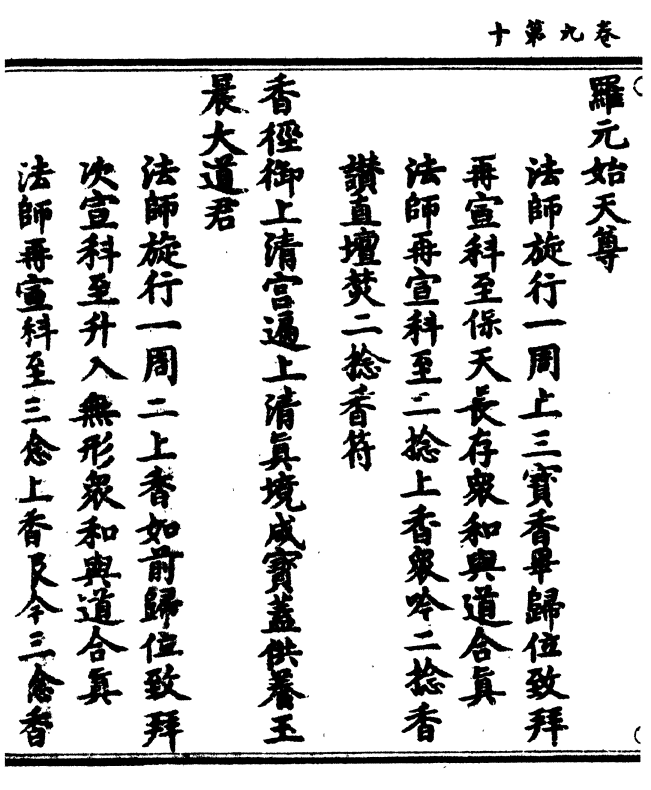 卷九第十
羅元始天尊
法師旋行一周上三寶香畢歸位致拜
再宣科至保天長存眾和與道合眞
法師再宣科至二捻上香眾吟二捻香
讃直壇焚二捻香符
香徑御上清宮遍上清眞境咸寶蓋供養玉
晨大道君
法師旋行一周二上香如前歸位致拜
次宣科至升入無形眾和與道合眞
法師再宣科至三念上香及今三念香